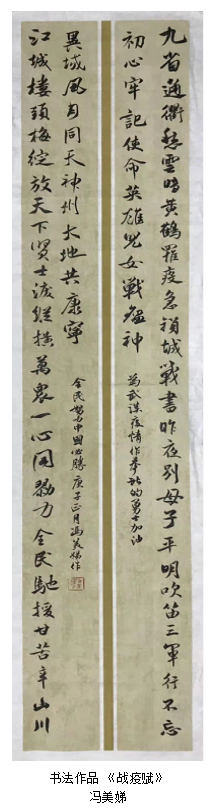 九省通衢愁雲暗黄鶴罹疫急城戰書昨夜别母子平明吹笛三軍行不忘
初心牢記使命英雄兒女戰瘟神
為武漢疫情作的勇士加油
江城樓頭梅綻放天下賢士縱横萬衆一心同勠力全民馳援甘苦辛山川
異域風月同天神州大地共康寧
全民努力中國必勝 庚子正月馮美娣作
书法作品 《战疫赋》
冯美娣